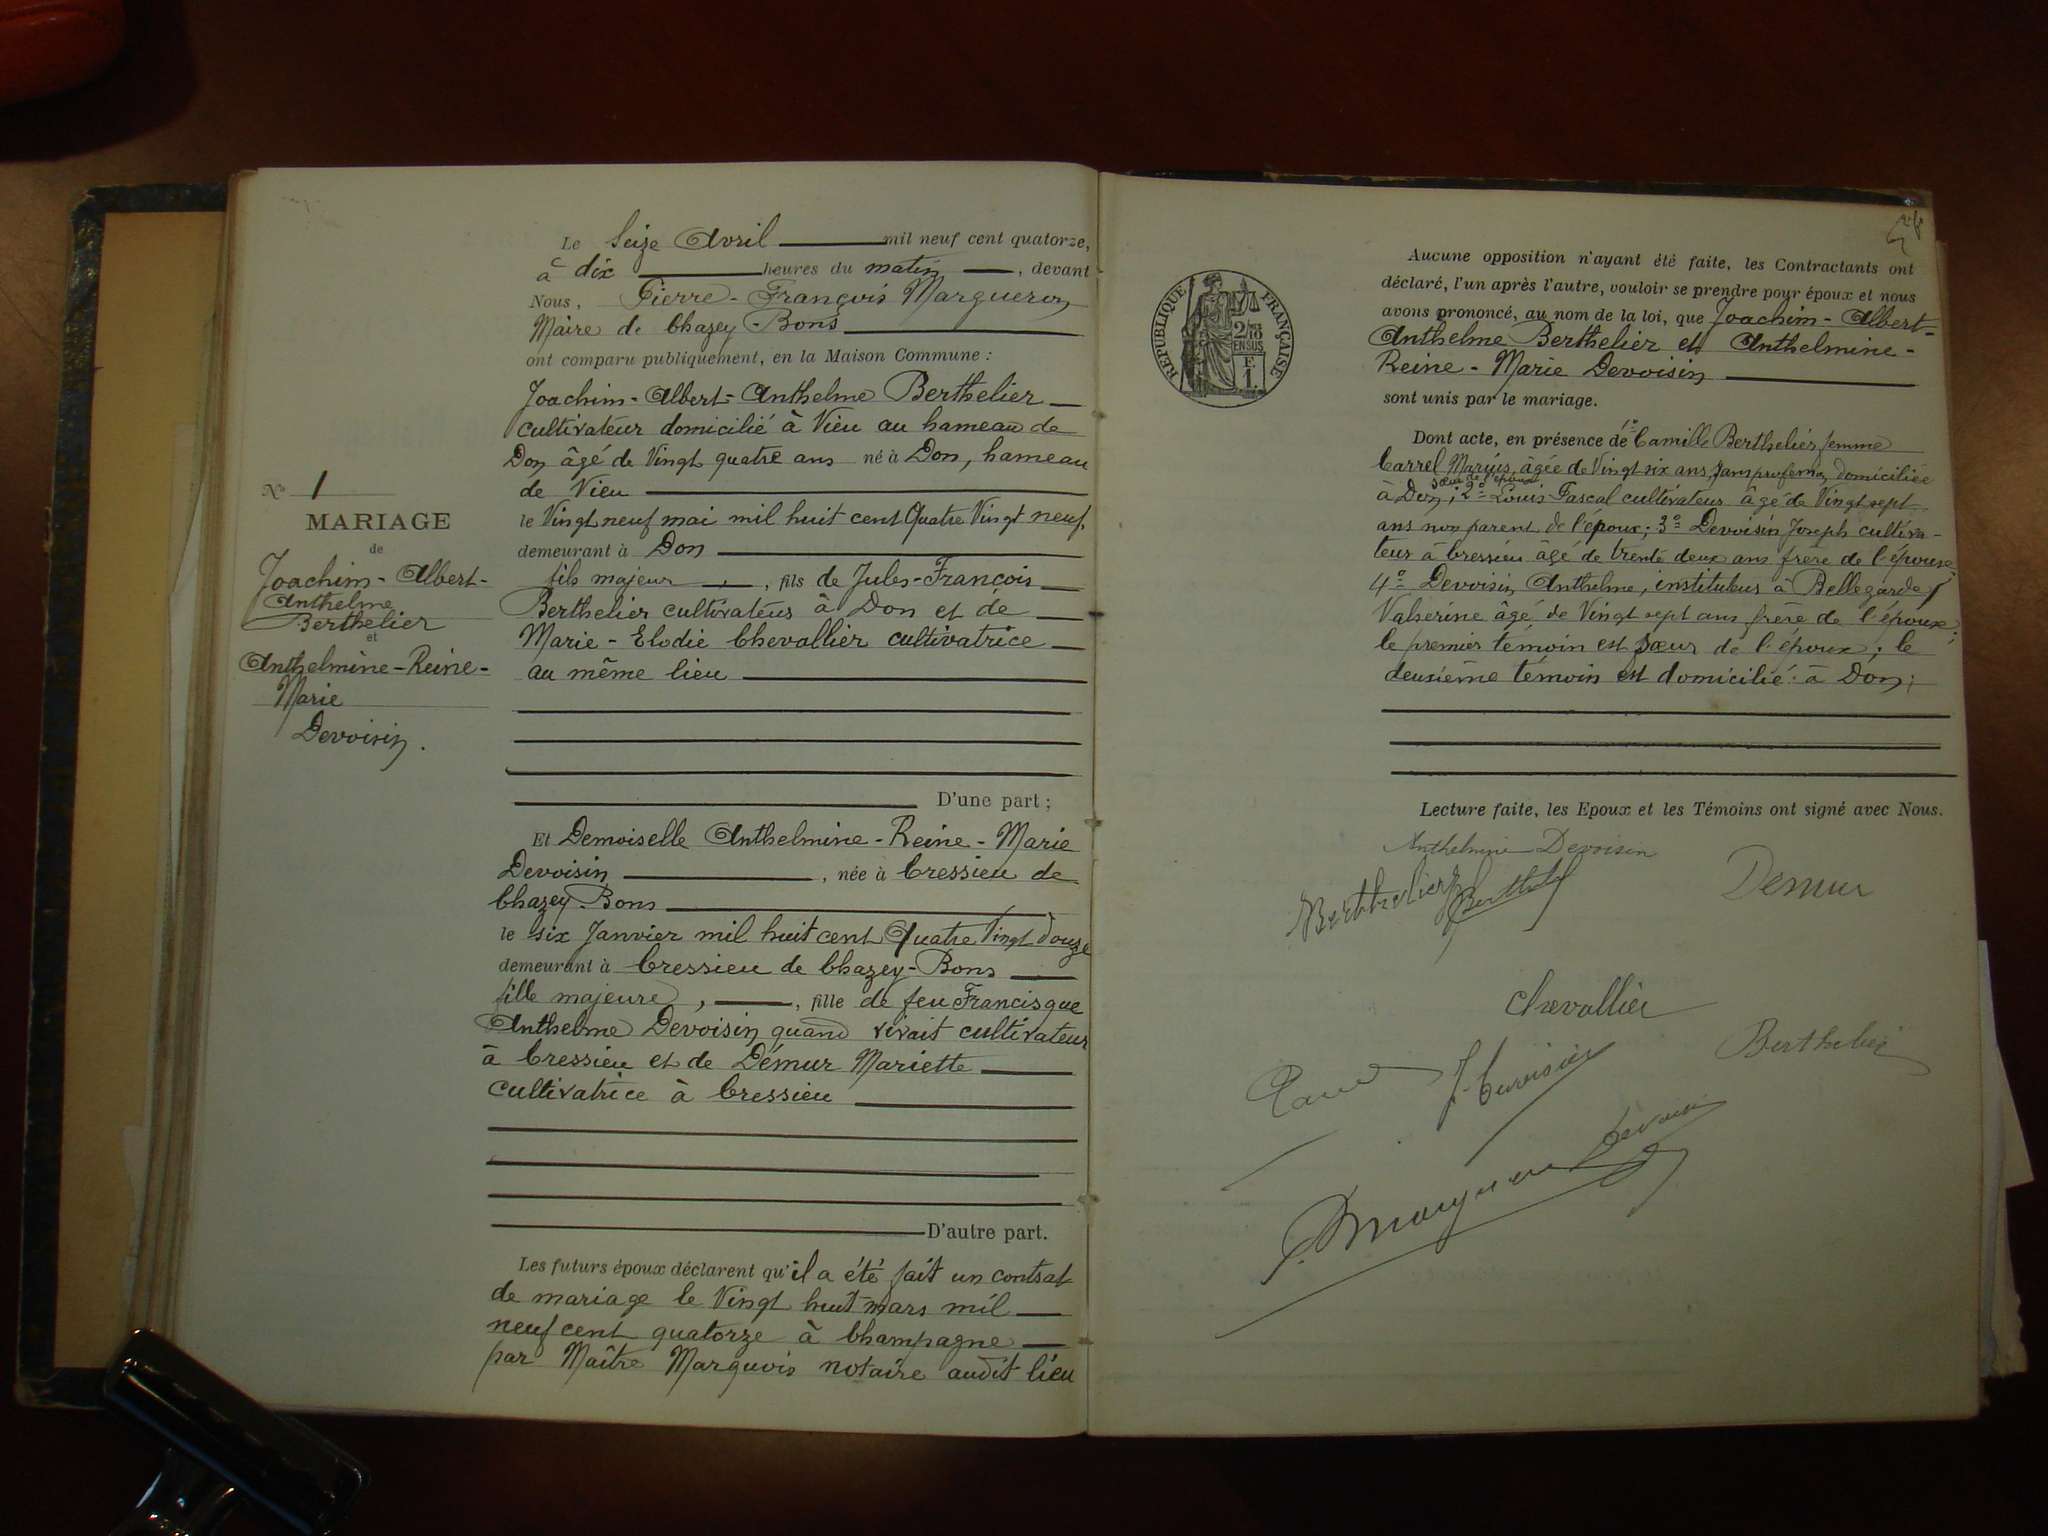 N° 1
MARIAGE
de
Joachim-Albert-
Anthelme
Berthelier
et
Anthelmine-Reine-
Marie
Devoisin.
Le Seize Avril mil neuf cent quatorze,
à dix heures du matin, devant
Nous, Pierre-François Margueron
Maire de Chazey-Bons
ont comparu publiquement, en la Maison Commune :
Joachim-Albert-Anthelme Berthelier
cultivateur domicilié à Vieu au hameau de
Don âgé de Vingt quatre ans né à Don, hameau
de Vieu
le Vingt neuf mai mil huit cent Quatre Vingt neuf.
demeurant à Don
fils majeur, fils de Jules-François
Berthelier cultivateur à Don et de
Marie-Elodie Chevallier cultivatrice
au même lieu
D'une part ;
Et Demoiselle Anthelmine-Reine-Marie
Devoisin, née à Cressieu de
Chazey-Bons
le six Janvier mil huit cent Quatre Vingt douze
demeurant à Cressieu de Chazey-Bons
fille majeure, fille de feu Francisque
Anthelme Devoisin quand vivait cultivateur
à Cressieu et de Démur Mariette
cultivatrice à Cressieu
D'autre part.
Les futurs époux déclarent qu'il a été fait un contrat
de mariage le Vingt huit mars mil
neuf cent quatorze à Champagne
par Maître Marquois notaire audit lieu
RÉPUBLIQUE FRANÇAISE
EN SUS
1
Aucune opposition n'ayant été faite, les Contractants ont
déclaré, l'un après l'autre, vouloir se prendre pour époux et nous
avons prononcé, au nom de la loi, que Joachim-Albert-
Anthelme Berthelier et Anthelmine-
Reine-Marie Devoisin
sont unis par le mariage.
Dont acte, en présence de 1° Camille Berthelier femme
Carrel Marius, âgée de Vingt six ans, sans profession, domiciliée
sœur de l'époux
à Don; 2° Louis Pascal cultivateur âgé de Vingt sept
ans non parent de l'époux; 3° Devoisin Joseph cultiva-
teur à Cressieu âgé de trente deux ans frère de l'épouse;
4° Devoisin Anthelme, instituteur à Bellegarde
Valserine âgé de Vingt sept ans frère de l'épouse;
le premier témoin est sœur de l'époux; le
deuxième témoin est domicilié à Don;
Lecture faite, les Epoux et les Témoins ont signé avec Nous.
Anthelmine Devoisin
Berthelier
Demur
Chevallier
Berthelier
J. Devoisin
Devoisin
Margueron